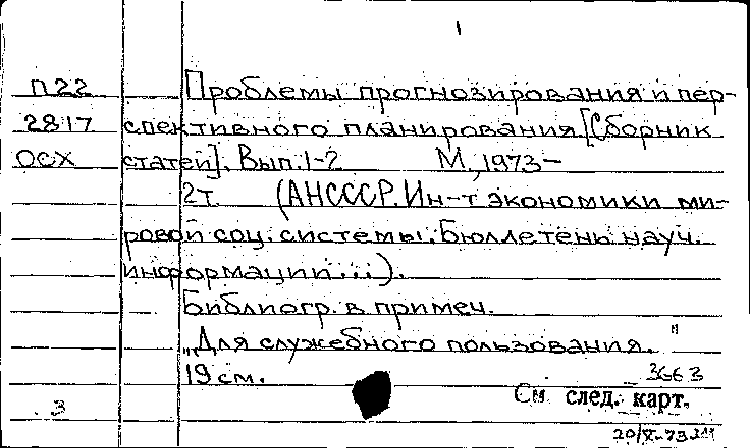 1
П22 Проблемы прогнозирования и пер-
2817 спективного планирования [Сборник
ОСХ статей]. Вып. 1-2 М., 1973-
2т. (АНСССР. Ин-т экономики ми-
ровой соц. системы. Бюллетень науч.
информации...).
Библиогр. в примеч.
„Для служебного пользования."
19 см. 3663
3 См. след. карт.
20/X-73